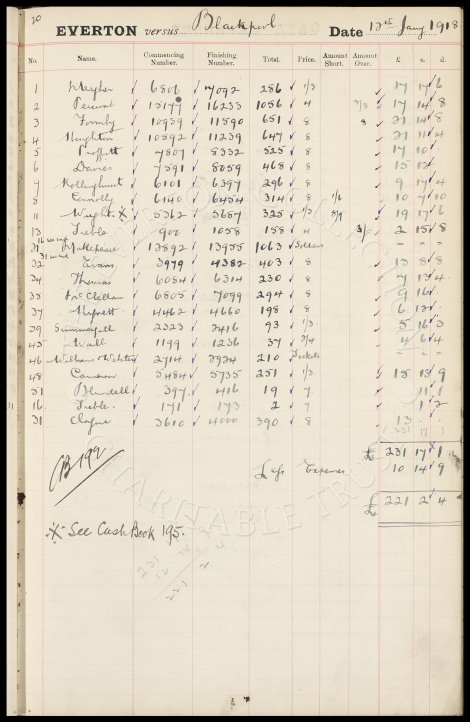 20
EVERTON versus Blackpool. Date 12th Jany 1918.
No. Name. Commencing Number. Finishing Number. Total. Price. Amount Short. Amount Over. £ s. d.
1 Meyher 6806 7092 286 1/3 17 17 6
2 Percival 15177 16233 1056 4 17 14 8
3 Formby 10939 11590 651 8 8 21 14 8
4 Houghton 10592 11239 647 8 21 11 4
5 Proffitt 7807 8332 525 8 17 10
6 Davies 7591 8059 468 8 15 12
7 Hollinghunt 6101 6397 296 8 9 17 4
8 Connolly 6140 6454 314 8 1/6 10 7 10
11 Wright ※ 5362 5687 325 1/3 8/9 19 17 6
13 Treble 900 1058 158 4 2 15 8
Makepeace 12892 13955 1063 Soldiers - - -
32 Evans 3979 4382 403 8 13 8 8
34 Thomas 6084 6314 230 8 7 13 4
35 McClellan 6805 7099 294 8 9 16
37 4462 4660 198 8 6 12
39 Summergill 2323 2416 93 1/3 5 16 3
45 Wall 1199 1236 37 2/4 4 6 4
46 Williams & Webster 2714 2924 210 Tickets - - -
48 Cameron 5484 5735 251 1/3 15 13 9
51 Blundell 397 416 19 7 11 1
16 Treble. 171 173 2 7 1 2
31 Clayne 3610 4000 390 8 13
231 17 1
£ 231 17 1
CB 192
Less Expenses 10 14 9
£ 221 2 4
※ See Cash Book 195.